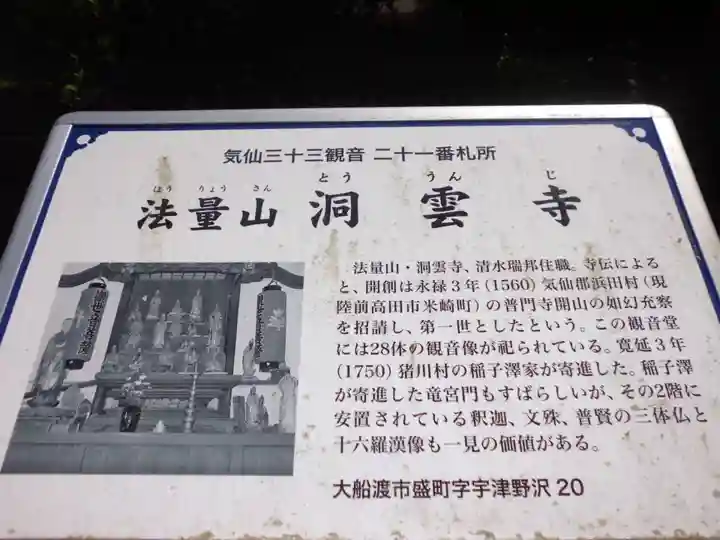 気仙三十三観音 二十一番札所
ほう りょう さん とう うん じ
法量山 洞雲寺
法量山・洞雲寺、清水瑞邦住職。寺伝による
と、開創は永禄3年(1560)気仙郡浜田村(現
陸前高田市米崎町)の普門寺開山の如幻充察
を招請し、第一世としたという。この観音堂
には28体の観音像が祀られている。寛延3年
(1750)猪川村の稲子澤家が寄進した。稲子澤
が寄進した竜宮門もすばらしいが、その2階に
安置されている釈迦、文殊、普賢の三体仏と
十六羅漢像も一見の価値がある。
大船渡市盛町字宇津野沢 20